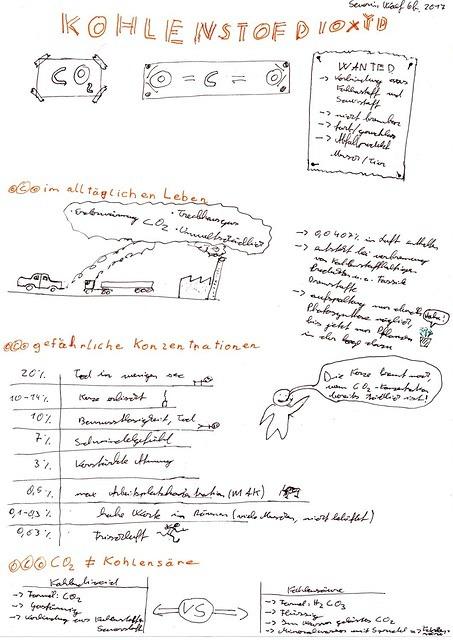 2017
KOHLENSTOFFDIOXID
CO₂
O = C = O
WANTED
→ Verbindung aus
Kohlenstoff und
Sauerstoff
→ nicht brennbar
→ farb/geruchlos
→ Abfallprodukt
Mensch/Tier
im alltäglichen Leben
• Erderwärmung CO₂ • Treibhausgas
• Umweltschädlich
→ 0,0407% in Luft enthalten
→ entsteht bei verbrennung
von Kohlenstoffhaltigen
Produkten u.a. Fossile
→ aufspaltung nur durch
Photosynthese möglich,
bis jetzt nur Pflanzen
in der Lage dazu
gefährliche Konzentrationen
20% Tod in wenigen sec
10-14% Kerze erlischt
10% Bewusstlosigkeit, Tod
7% Schwindelgefühl
3% Verstärkte Atmung
0,5% max Arbeitsplatzkonzentration (MAK)
hohe Werte in Räumen (viele Menschen, nicht belüftet)
Frischluft
Die Kerze brennt noch,
wenn CO₂-Konzentration
bereits tödlich ist!
CO₂ ≠ Kohlensäure
Kohlendioxid
→ Formel: CO₂
→ Gasförmig
→ Verbindung aus Kohlenstoff
Sauerstoff
VS
Kohlensäure
→ Formel: H₂CO₃
→ Flüssig
→ In Wasser gelöstes CO₂
→ Mineralwasser mit Sprudel